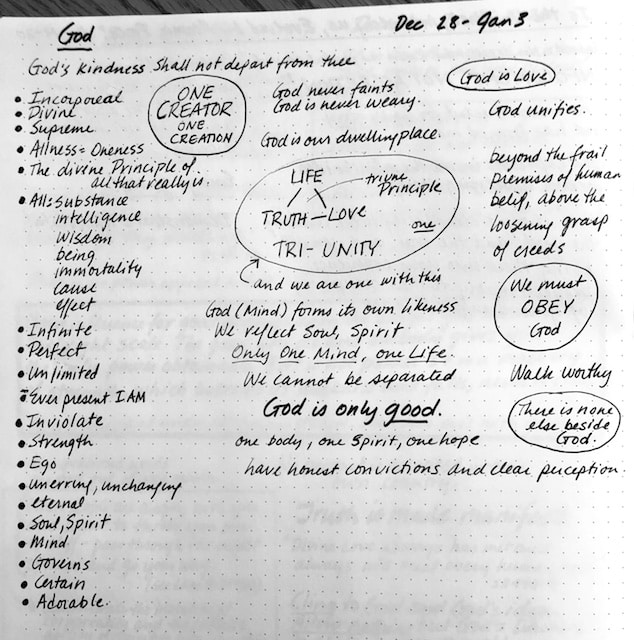 God
Dec 28 - Jan 3
God's Kindness shall not depart from thee
• Incorporeal
• Divine
• Supreme
• Allness = Oneness
• The divine Principle of
all that really is.
• All: Substance
intelligence
wisdom
being
immortality
cause
effect
• Infinite
• Perfect
• Unlimited
• Ever present I AM
• Inviolate
• Strength
• Ego
• unerring, unchanging
• eternal
• Soul, Spirit
• Mind
• Governs
• Certain
• Adorable.
ONE
CREATOR
ONE
CREATION
God never faints
God is never weary.
God is our dwelling place.
LIFE
triune
Principle
TRUTH - LOVE
one
TRI-UNITY
and we are one with this
God (Mind) forms its own likeness
We reflect Soul, Spirit
Only One Mind, one Life.
We cannot be separated
God is only good.
one body, one Spirit, one hope
have honest convictions and clear perception.
God is Love
God unifies.
beyond the frail
premises of human
belif, above the
loosening grasp
of creeds
We must
OBEY
God
Walk worthy
There is none
else beside
God.